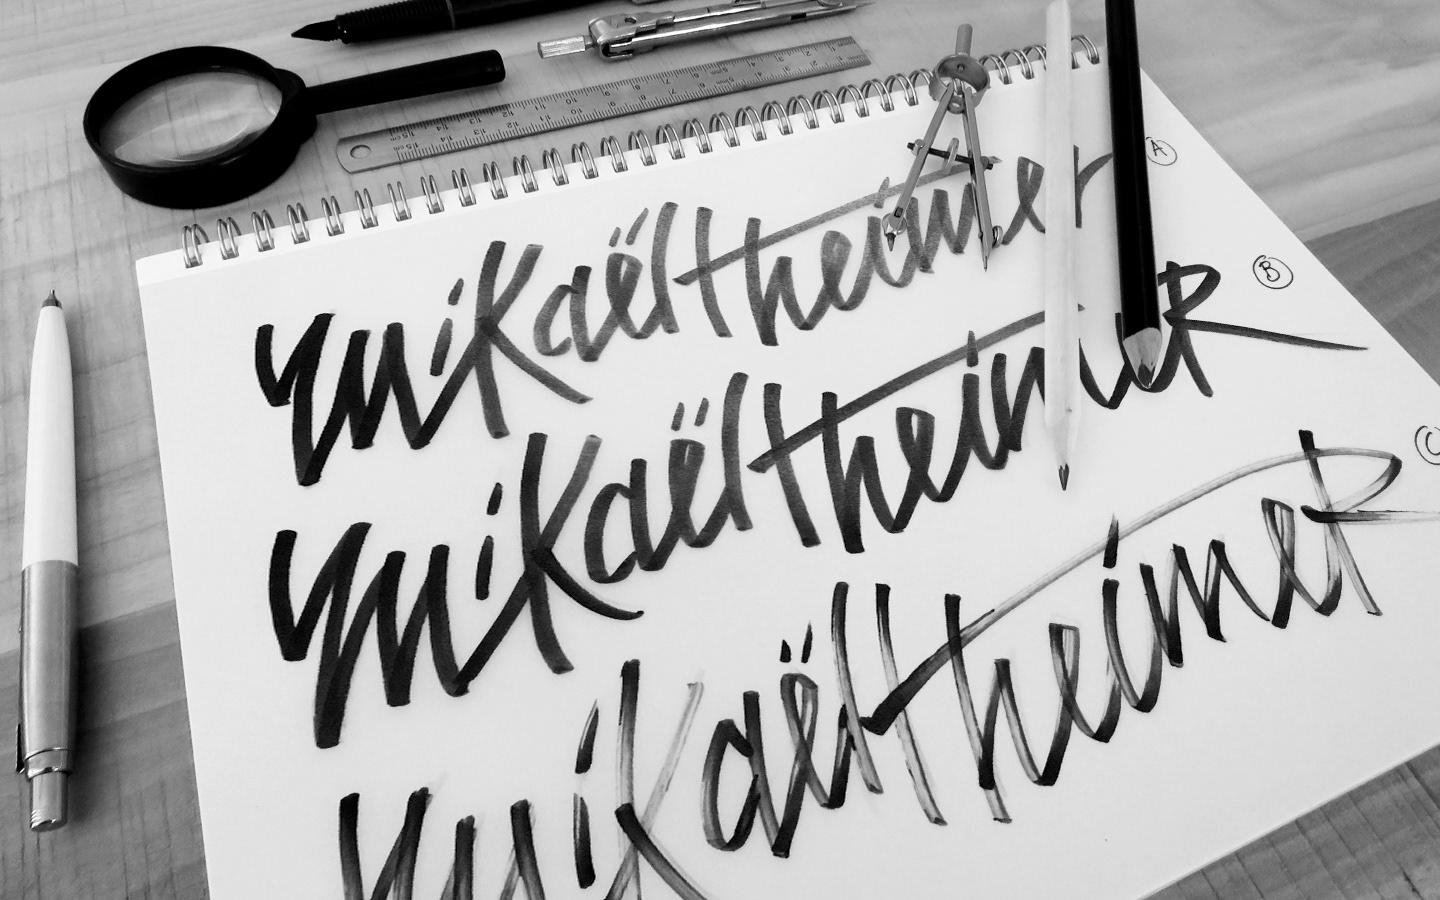 mikaëltheimer A
mikaëltheimeR B
mikaëltheimeR C